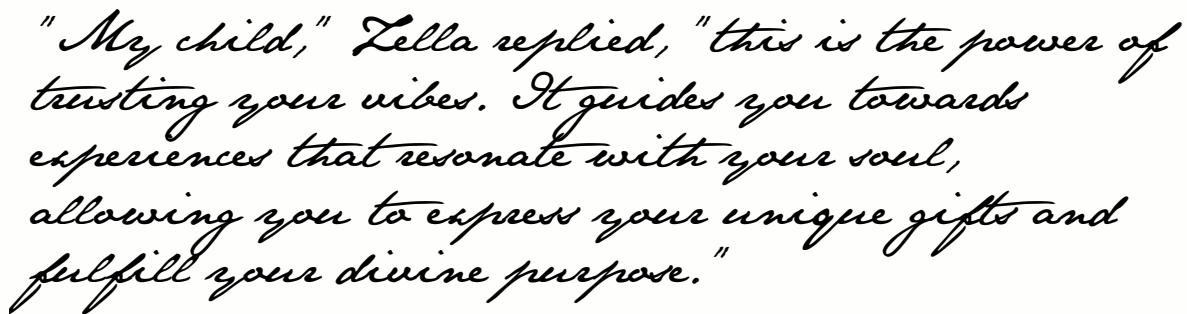 "My child," Zella replied, "this is the power of
trusting your vibes. It guides you towards
experiences that resonate with your soul,
allowing you to express your unique gifts and
fulfill your divine purpose."